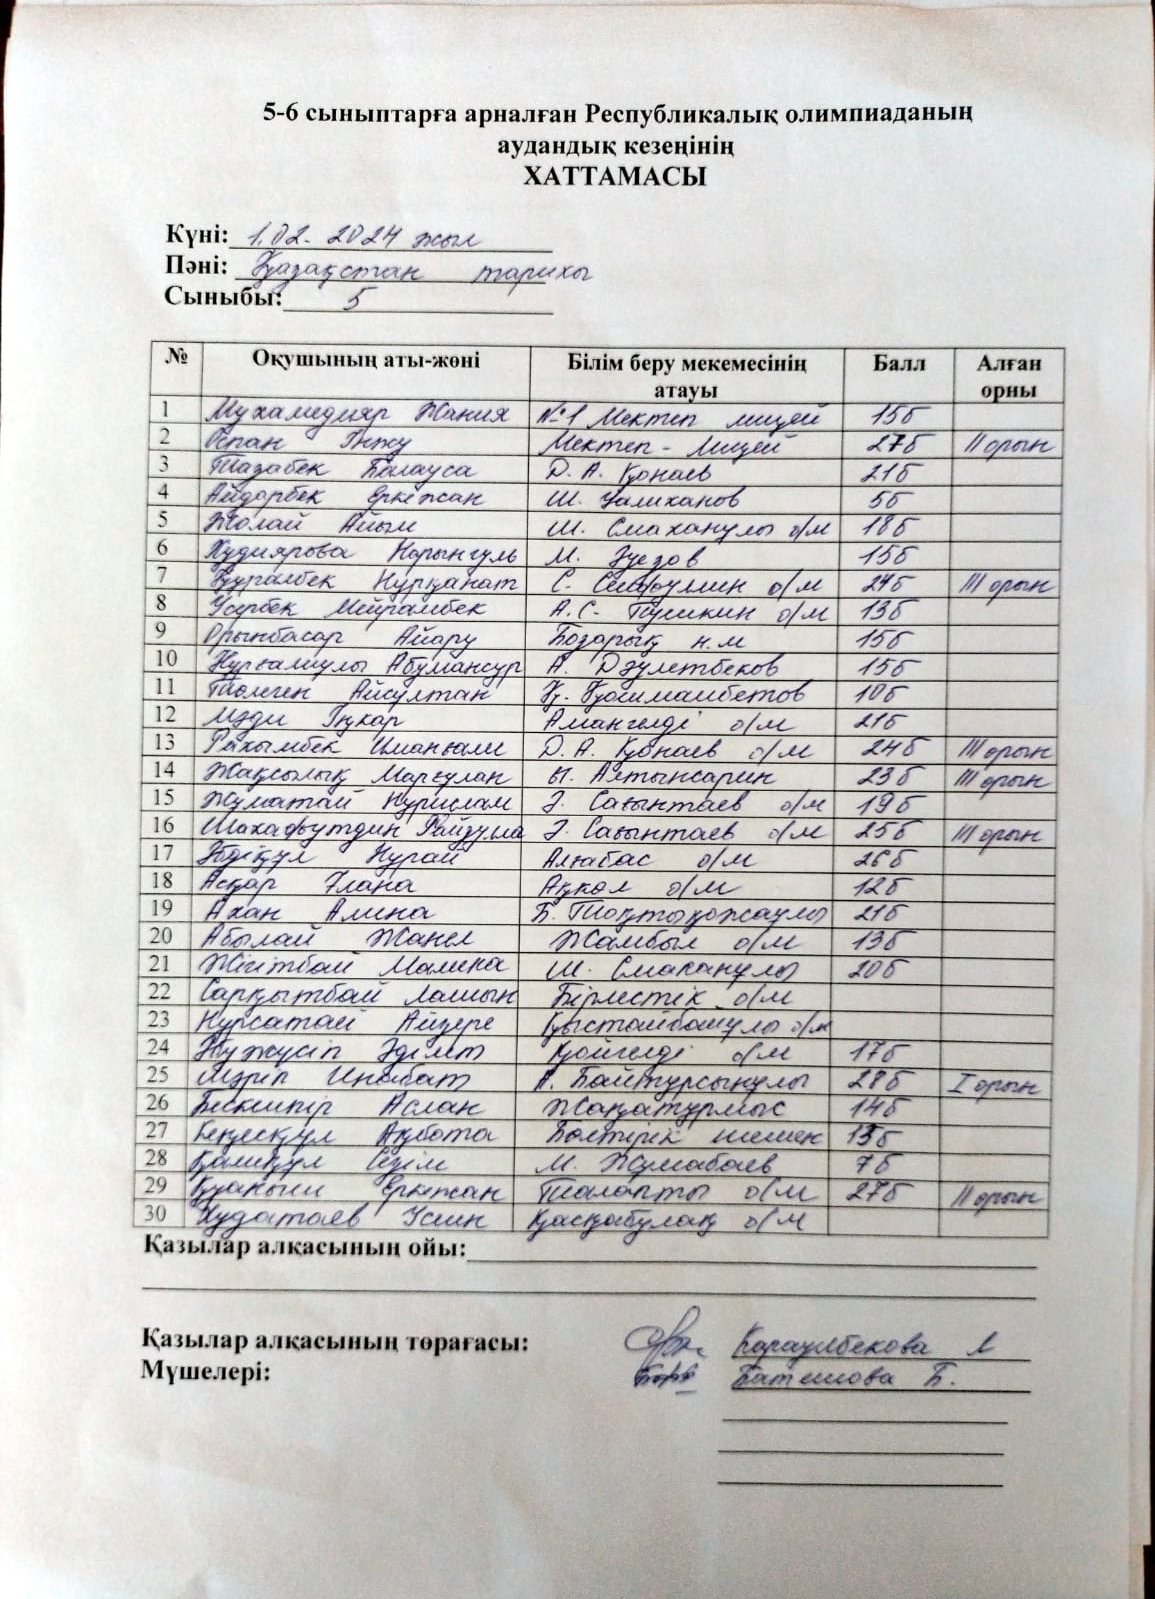 5-6 сыныптарға арналған Республикалық олимпиаданың
аудандық кезеңінің
ХАТТАМАСЫ
Күні: 1.02. 2024 жыл
Пәні: Қазақстан тарихы
Сыныбы: 5
№ Оқушының аты-жөні Білім беру мекемесінің атауы Балл Алған орны
1 Мухамедияр Жания №1 Мектеп лицей 15б
2 Оспан Інжу Мектеп - Лицей 27б II орын
3 Тазабек Балауса Д. А. Қонаев 21б
4 Айдарбек Еркежан Ш. Уалиханов 5б
5 Жолай Айым Ш. Смаханұлы о/м 18б
6 Худиярова Нарынгуль М. Әуезов 15б
7 Құралбек Нұрқанат С. Сейфуллин о/м 24б III орын
8 Усербек Мейрамбек А.С. Пушкин о/м 13б
9 Орынбасар Айару Бозарық н.м 15б
10 Нұрғалиұлы Абумансур А. Дәулетбеков 15б
11 Төлеген Айсултан Қ. Қосимамбетов 10б
12 Мәди Іңкар Амангелді о/м 21б
13 Рахымбек Иманғали Д.А. Қонаев о/м 24б III орын
14 Жақсылық Марғулан Ы. Алтынсарин 23б III орын
15 Жуматай Нурислам Ә. Сағынтаев о/м 19б
16 Шахафутдин Ә. Сағынтаев о/м 25б III орын
17 Нұрай Алғабас о/м 26б
18 Асқар Ұлана Ақкөл о/м 12б
19 Ахан Алина Б. Тоқтықожаұлы 21б
20 Абылай Жанел Жамбыл о/м 13б
21 Жігітбай Малика Ш. Смаханұлы 20б
22 Сарқытбай Лашын Бірлестік о/м
23 Нурсатай Айзере Қыстаубайұлы о/м
24 Нүжүсіп Әділет Қойгелді о/м 17б
25 Мәріп Инабат А. Байтұрсынұлы 28б I орын
26 Бескемпір Аслан Жаңатұрмыс 14б
27 Кеңесқұл Ақбота Бөлтірік шешен 13б
28 Қалиқұл Сезім М. Жұмабаев 7б
29 Қуаныш Еркежан Талапты о/м 27б II орын
30 Худатаев Усман Қасқабұлақ о/м
Қазылар алқасының ойы:
Қазылар алқасының төрағасы: Караулбекова Л
Мүшелері: Батешова Б.